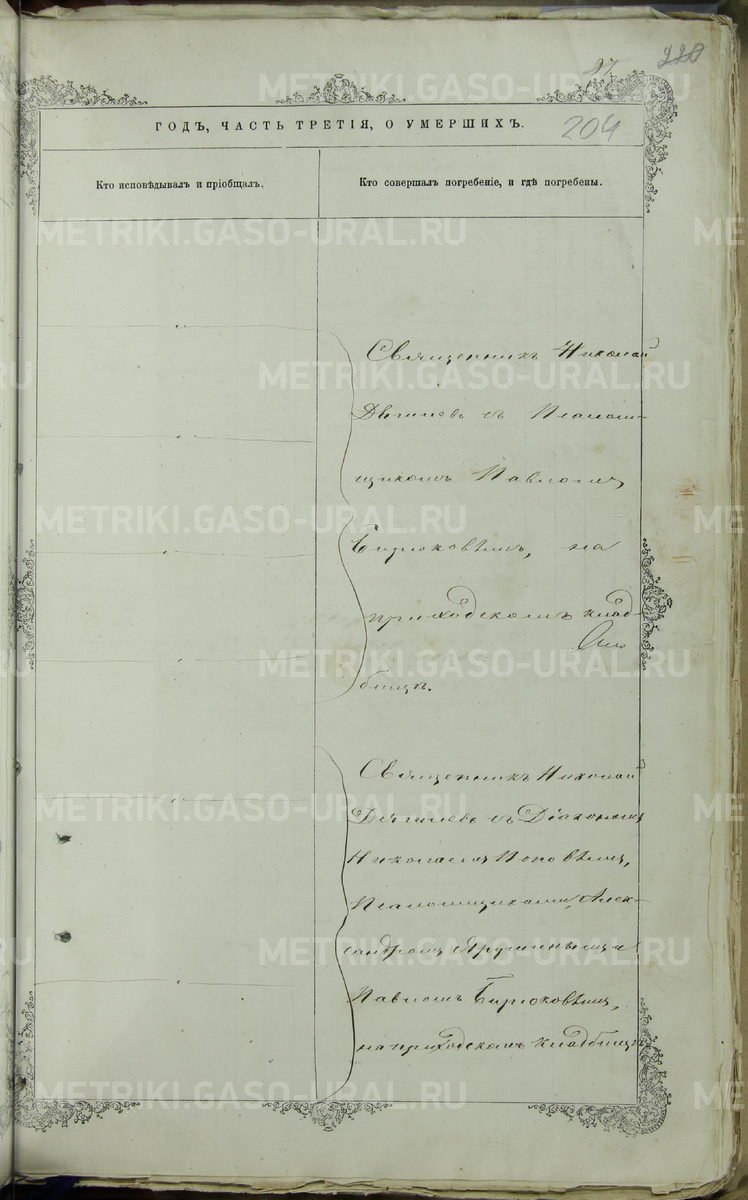 97
220
ГОДЪ, ЧАСТЬ ТРЕТІЯ, О УМЕРШИХЪ.
204
Кто исповѣдывалъ и пріобщалъ.
Кто совершалъ погребеніе, и гдѣ погребены.
Священникъ Николай
съ Псалом-
щикомъ Павломъ
Бирюковымъ, на
приходскомъ клад-
бищѣ.
Священникъ Николай
съ Діакономъ
Николаемъ Поповымъ,
Псаломщиками, Алек-
сандромъ и
Павломъ Бирюковымъ,
на приходскомъ кладбищѣ
METRIKI.GASO-URAL.RU